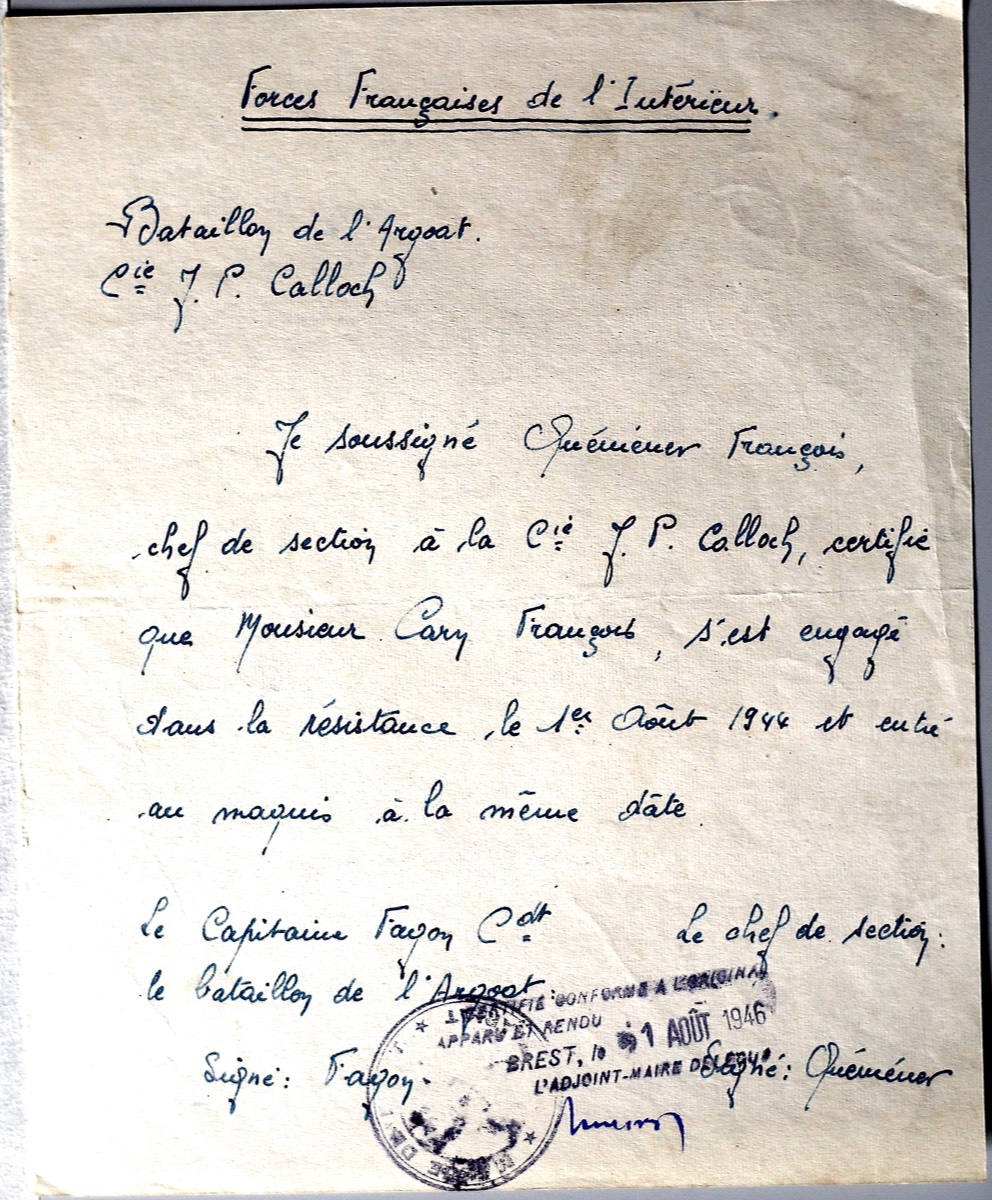 Forces Françaises de l'Intérieur.
Bataillon de l'Argoat.
Cie J. P. Calloch
Je soussigné Quéméner François,
chef de section à la Cie J. P. Calloch, certifie
que Monsieur Cary François, s'est engagé
dans la résistance le 1er Août 1944 et entré
au maquis à la même dâte
Le Capitaine Fagon Cdt Le chef de section:
le bataillon de l'Argoat:
CERTIFIÉ CONFORME A L'ORIGINAL
APPARU ET RENDU
BREST, le 31 AOÛT 1946
L'ADJOINT-MAIRE DÉLÉGUÉ
Signé: Fagon. Signé: Quéméner
MAIRIE DE